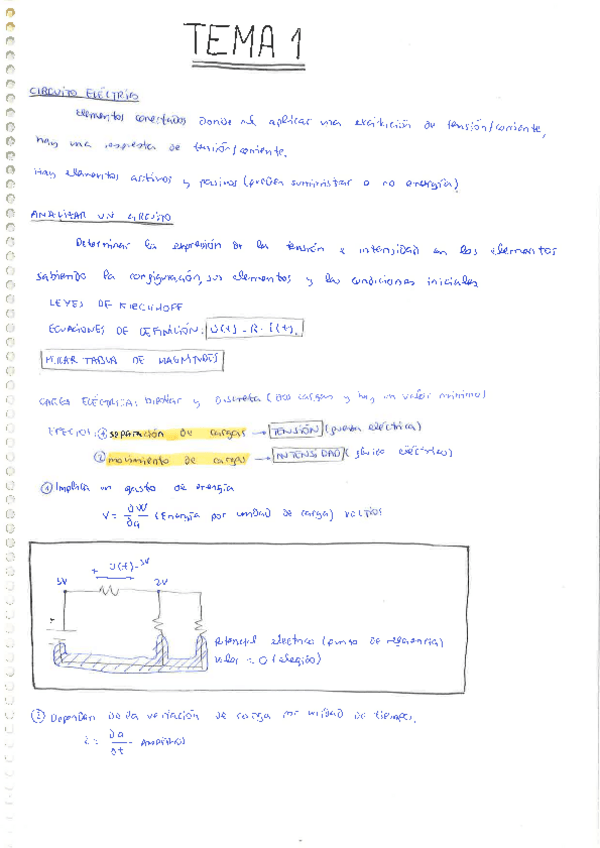 TEMA 1
CIRCUITO ELÉCTRICO
Elementos conectados donde al aplicar una excitación de tensión/corriente,
hay una respuesta de tensión/corriente.
Hay elementos activos y pasivos (pueden suministrar o no energía)
ANALIZAR UN CIRCUITO
Determinar la expresión de la tensión e intensidad en los elementos
sabiendo la configuración, sus elementos y las condiciones iniciales
LEYES DE KIRCHHOFF
ECUACIONES DE DEFINICIÓN: U(t) = R · i(t).
MIRAR TABLA DE MAGNITUDES
CARGA ELÉCTRICA: bipolar y discreta (dos cargas y hay un valor mínimo)
EFECTOS: ① separación de cargas → TENSIÓN (fuerza eléctrica)
② movimiento de cargas → INTENSIDAD (fluido eléctrico)
① Implica un gasto de energía
V = ∂W/∂q (Energía por unidad de carga) voltios
+ U(t) = 3V -
5V 2V
+
Potencial eléctrico (punto de referencia)
Valor = 0 (elegido)
② Dependen de la variación de carga por unidad de tiempo.
i = ∂q/∂t - AMPERIOS